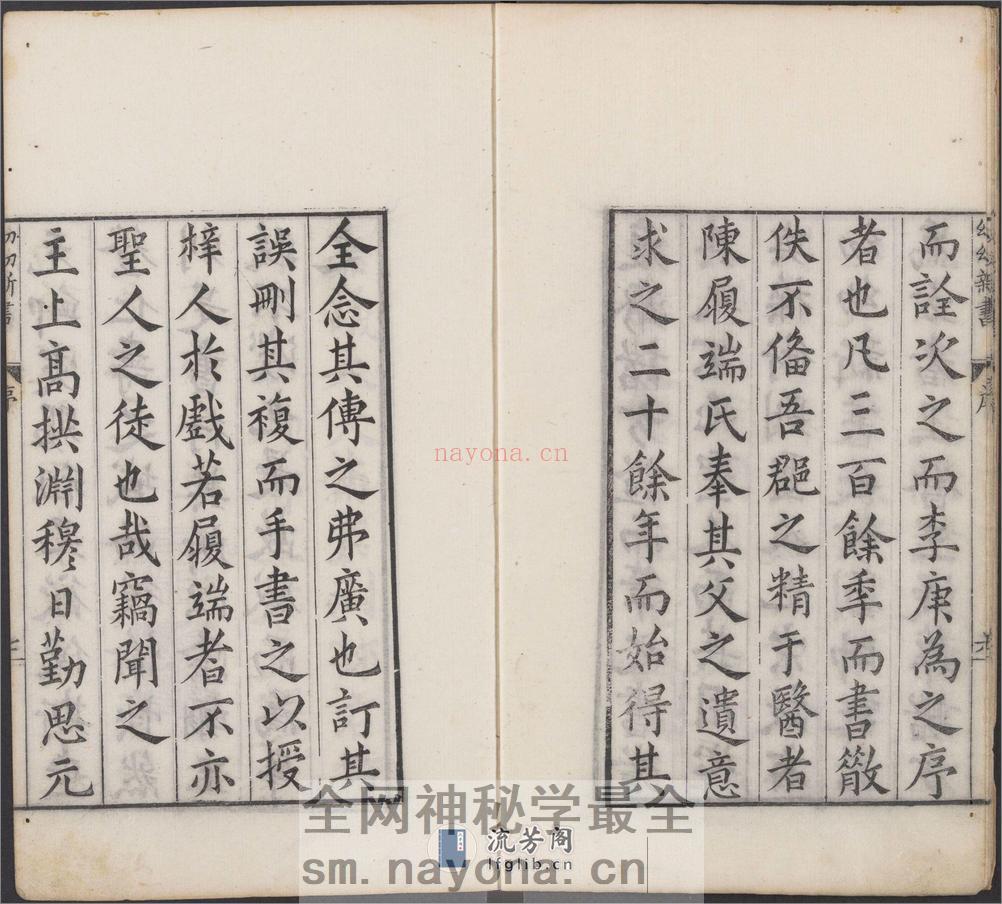 幼幼新書
序
而詮次之而李庚為之序
者也凡三百餘季而書散
佚不俻吾郡之精于醫者
陳履端氏奉其父之遺意
求之二十餘年而始得其
全念其傳之弗廣也訂其
誤刪其複而手書之以授
梓人於戲若履端者不亦
聖人之徒也哉竊聞之
主上高拱淵穆日勤思元
幼幼新書
序
三
nayona.cn
全网神秘学最全
流芳阁
lfglib.cn
sm.nayona.cn